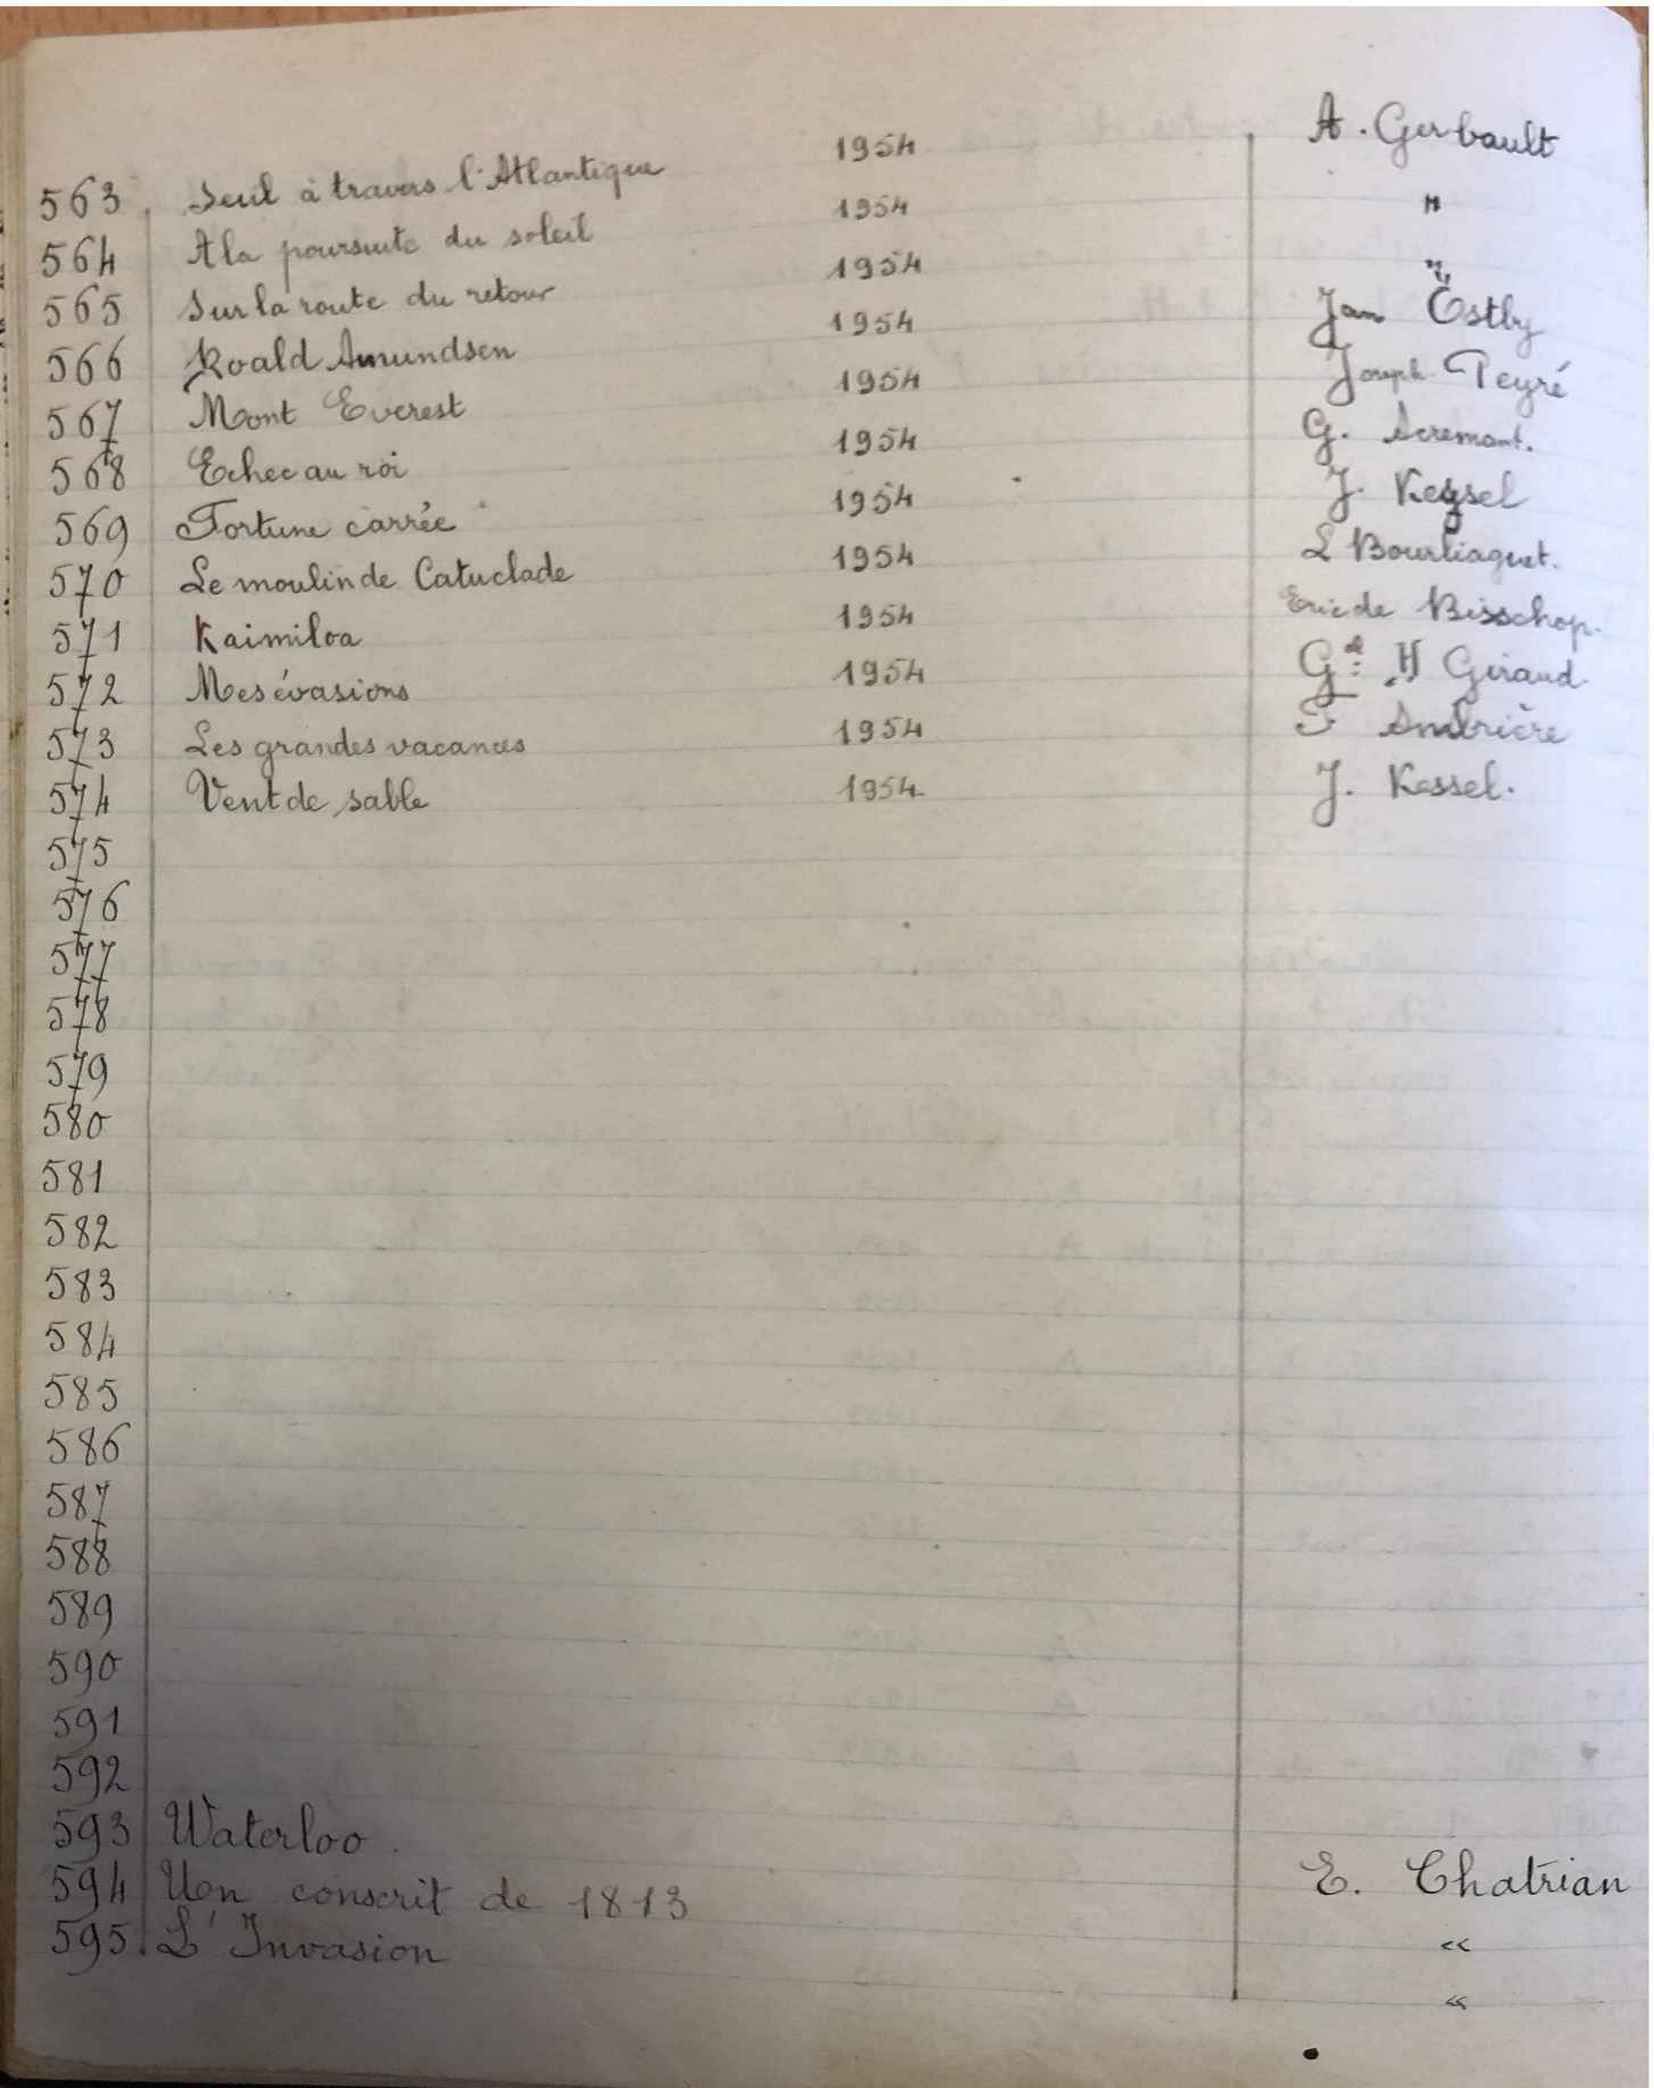 563. Seul à travers l'Atlantique 1954 A. Gerbault
564 A la poursuite du soleil 1954 "
565 Sur la route du retour 1954 "
566 Roald Amundsen 1954 Jan Östby
567 Mont Everest 1954 Joseph Peyré
568 Echec au roi 1954 G. Acremant.
569 Fortune carrée 1954 J. Kessel
570 Le moulin de Catuclade 1954 L Bourliaguet.
571 Kaimiloa 1954 Eric de Bisschop.
572 Mes évasions 1954 Gal H Giraud.
573 Les grandes vacances 1954 F Ambrière
574 Vent de sable 1954 J. Kessel.
575
576
577
578
579
580
581
582
583
584
585
586
587
588
589
590
591
592
593 Waterloo. E. Chatrian
594 Un conscrit de 1813 "
595. L'Invasion "